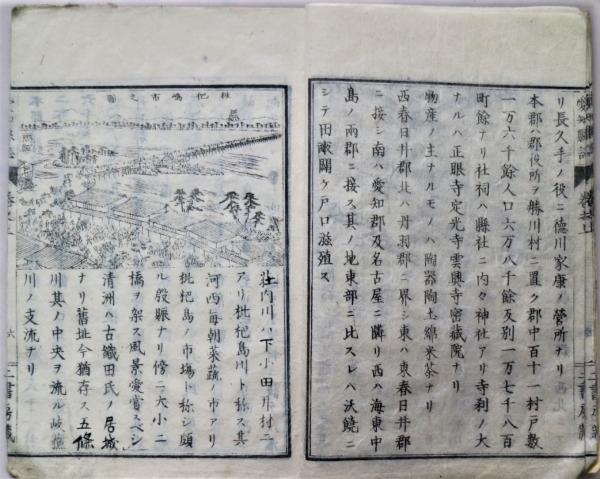 リ長久手ノ役ニ徳川家康ノ營所ナリ
本郡ハ郡役所ヲ勝川村ニ置ク郡中百十一村戸數
一万六千餘人口六万八千餘反別一万七千八百
町餘ナリ社祠ハ縣社ニ内々神社アリ寺刹ノ大
ナルハ正眼寺定光寺雲興寺密藏院ナリ
物産ノ主ナルモノハ陶器陶土綿米茶ナリ
西春日井郡北ハ丹羽郡ニ界シ東ハ東春日井郡
ニ接シ南ハ愛知郡及名古屋ニ隣リ西ハ海東中
島ノ兩郡ニ接ス其ノ地東部ニ比スレハ沃饒ニ
シテ田畝闢ケ戸口滋殖ス
枇杷嶋市之圖
庄内川ハ下小田井村ニ
アリ枇杷島川ト称ス其
河西毎朝菜蔬ノ市アリ
枇杷島ノ市場ト称シ頗
ル殷賑ナリ傍ニ大小二
橋ヲ架ス風景愛賞スベシ
清洲ハ古織田氏ノ居城
ナリ舊址今猶存ス五條
川其ノ中央ヲ流ル岐
川ノ支流ナリ
六
二書房藏